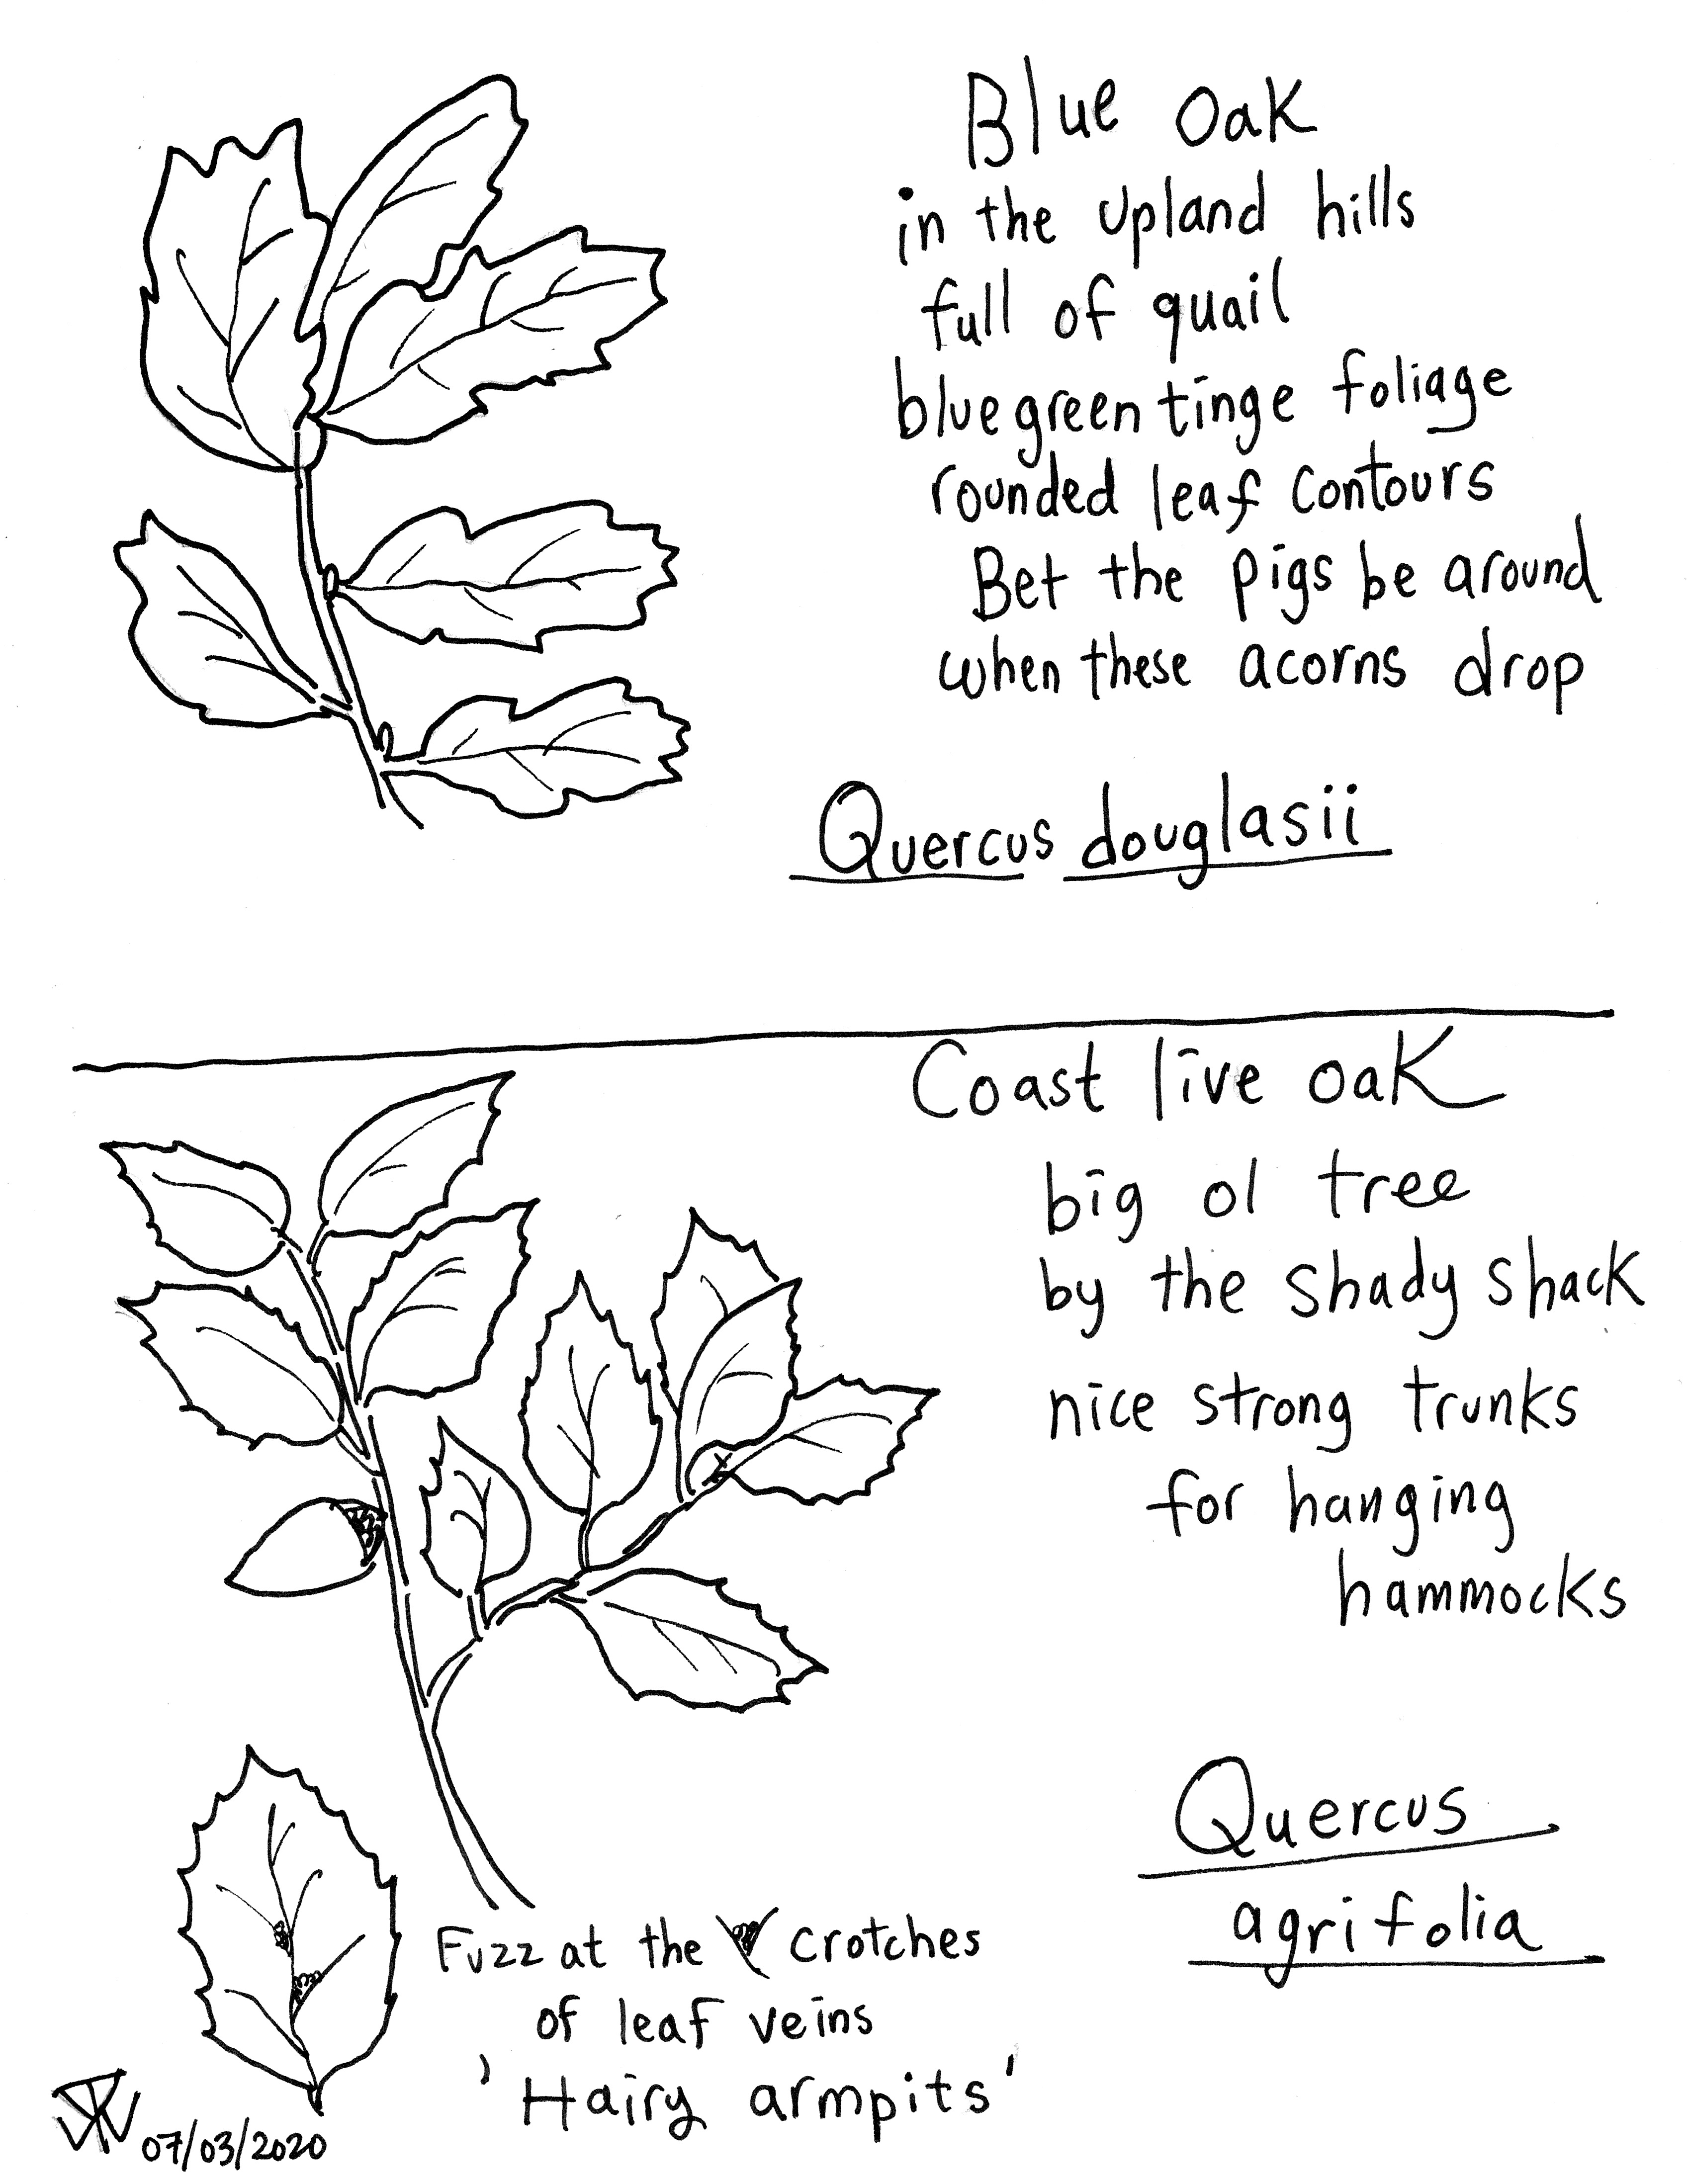 Blue oak
in the upland hills
full of quail
bluegreen tinge foliage
rounded leaf contours
Bet the pigs be around
when these acorns drop
Quercus douglasii
Coast live oak
big ol tree
by the shady shack
nice strong trunks
for hanging
hammocks
Quercus
agrifolia
Fuzz at the crotches
of leaf veins
'Hairy armpits'
07/03/2020